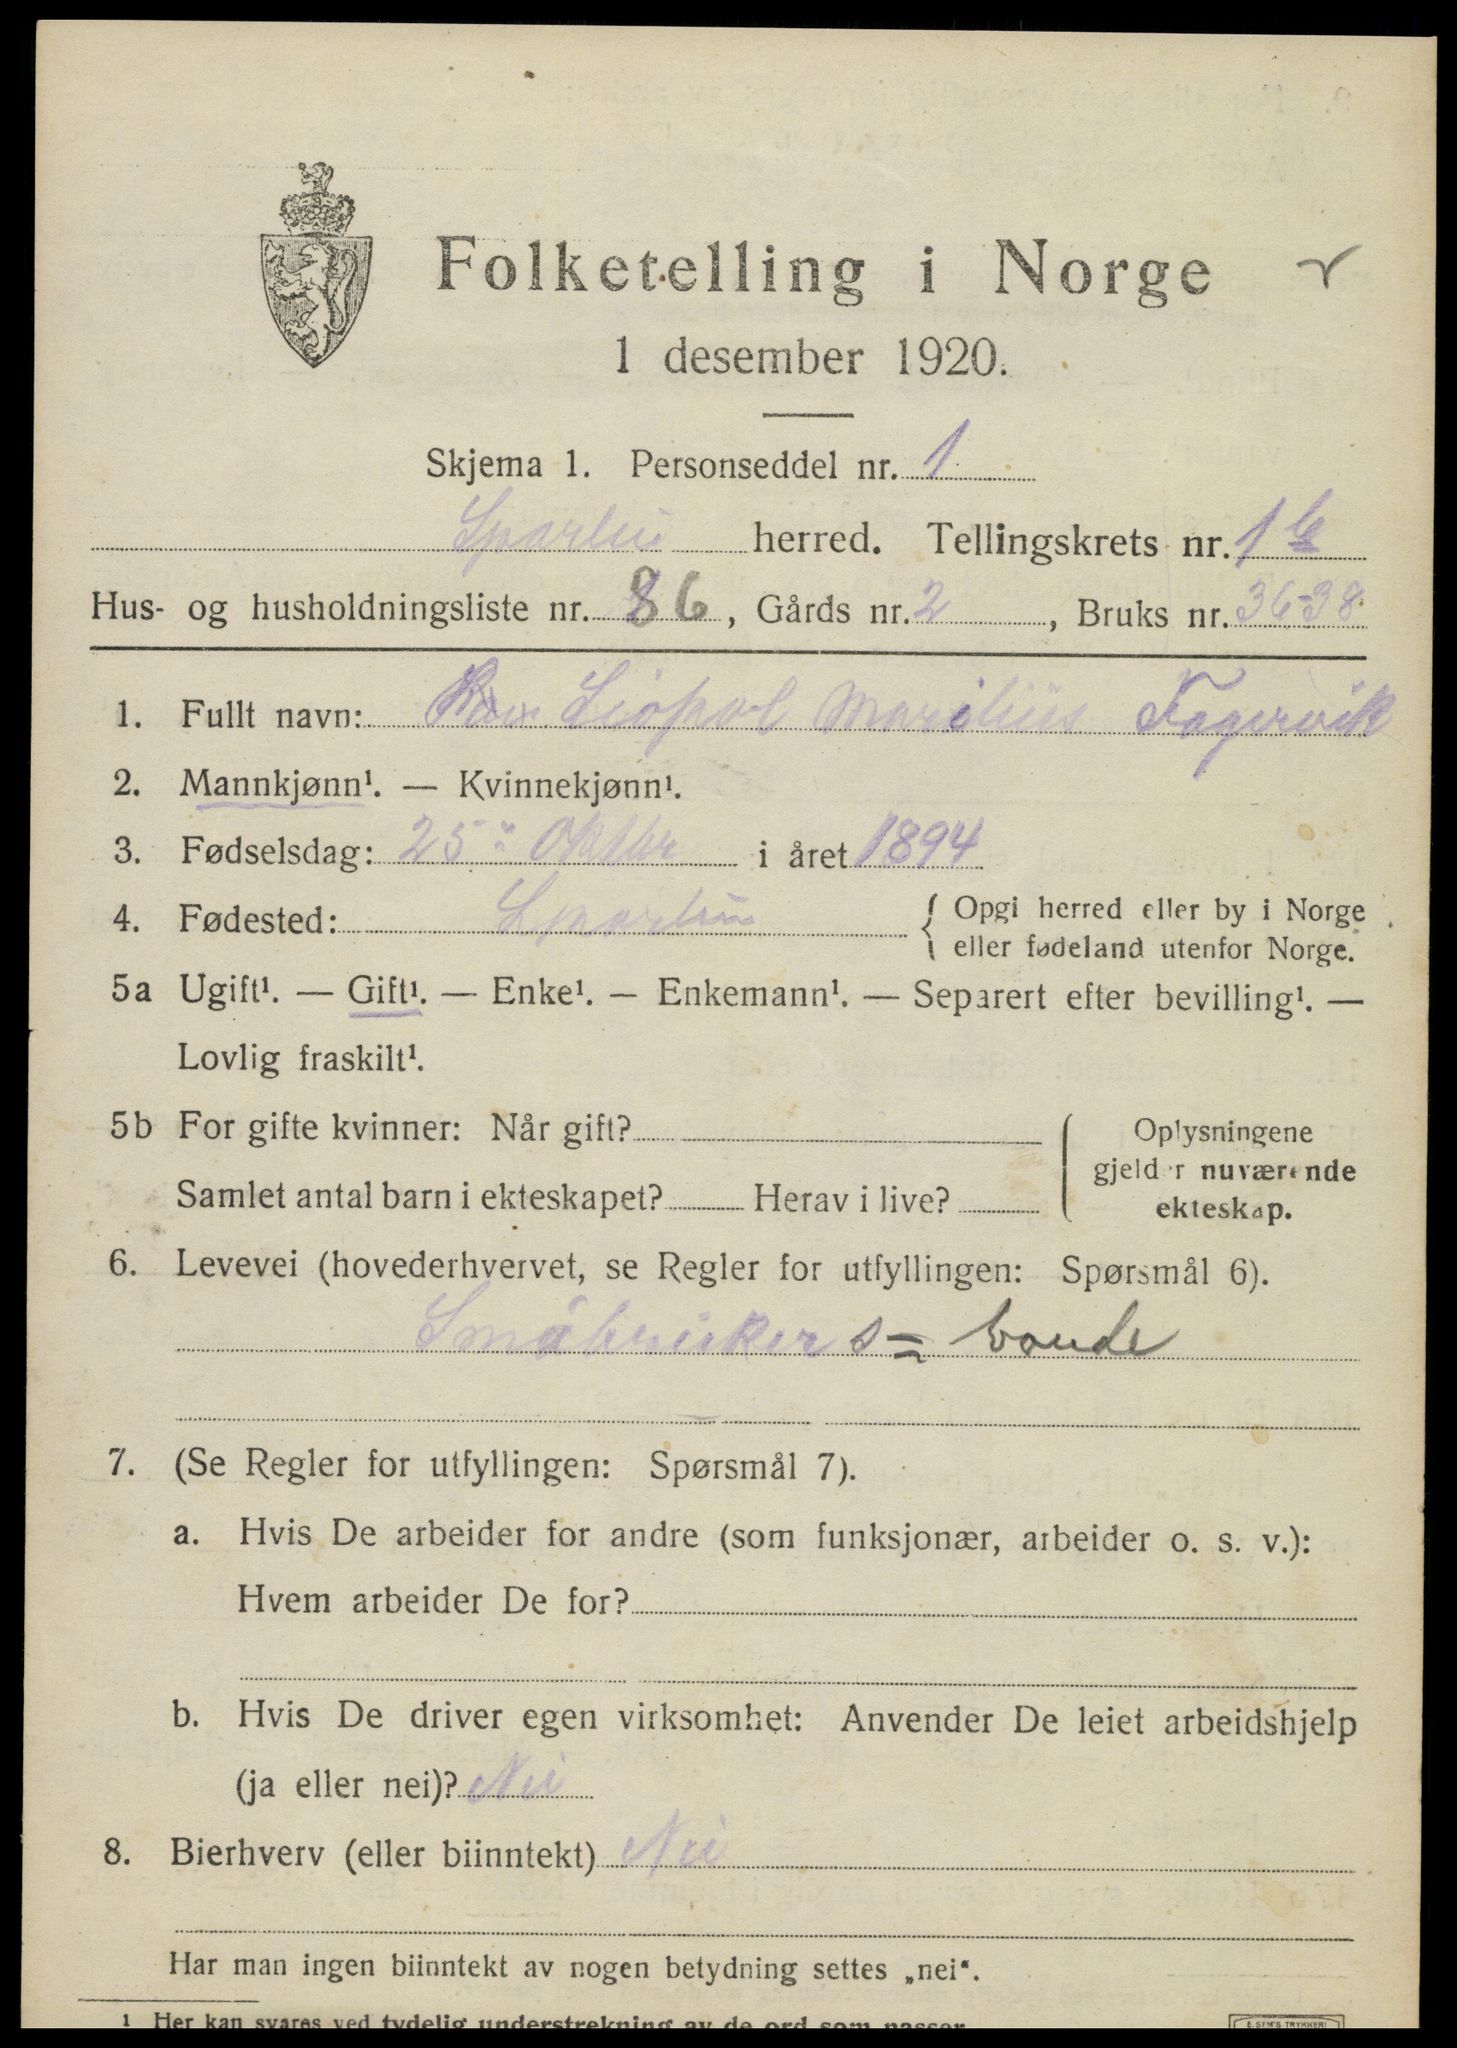 Folketelling i Norge
1 desember 1920.
Skjema 1. Personseddel nr. 1
Sparbu herred. Tellingskrets nr. 1 b
Hus- og husholdningsliste nr. 86, Gårds nr. 2, Bruks nr. 36-38
1. Fullt navn: Liopol Marelius Fagervik
2. Mannkjønn¹. — Kvinnekjønn¹.
3. Fødselsdag: 25" Oktbr i året 1894
4. Fødested: Sparbu { Opgi herred eller by i Norge
eller fødeland utenfor Norge.
5a Ugift¹. — Gift¹. — Enke¹. — Enkemann¹. — Separert efter bevilling¹. —
Lovlig fraskilt¹.
5b For gifte kvinner: Når gift?
Samlet antal barn i ekteskapet? Herav i live?
Oplysningene
gjelder nuværende
ekteskap.
6. Levevei (hovederhvervet, se Regler for utfyllingen: Spørsmål 6).
Småbruker s= bonde
7. (Se Regler for utfyllingen: Spørsmål 7).
a. Hvis De arbeider for andre (som funksjonær, arbeider o. s. v.):
Hvem arbeider De for?
b. Hvis De driver egen virksomhet: Anvender De leiet arbeidshjelp
(ja eller nei)? Nei
8. Bierhverv (eller biinntekt) Nei
Har man ingen biinntekt av nogen betydning settes „nei“.
¹ Her kan svares ved tydelig understrekning av de ord som passer.
E. SEM'S TRYKKERI